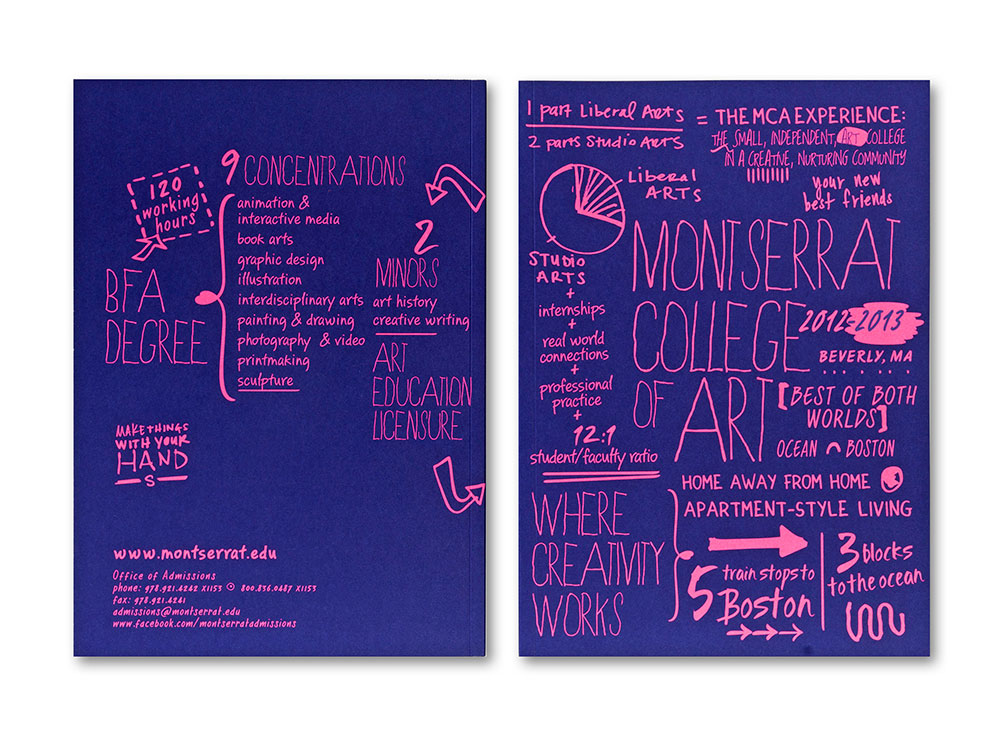 120
working
hours
BFA
DEGREE
9 CONCENTRATIONS
animation &
interactive media
book arts
graphic design
illustration
interdisciplinary arts
painting & drawing
photography & video
printmaking
sculpture
2
MINORS
art history
creative writing
ART
EDUCATION
LICENSURE
MAKE THINGS
WITH YOUR
HAND
S
www.montserrat.edu
Office of Admissions
phone: 978.921.4242 x1153 800.836.0487 x1153
fax: 978.921.4241
admissions@montserrat.edu
www.facebook.com/montserratadmissions
1 part Liberal Arts
2 parts Studio Arts
= THE MCA EXPERIENCE:
THE SMALL, INDEPENDENT, ART COLLEGE
IN A CREATIVE, NURTURING COMMUNITY
your new
best friends
LIBERAL
ARTS
STUDIO
ARTS
+
internships
+
real world
connections
+
professional
practice
+
12:1
student/faculty ratio
MONTSERRAT
COLLEGE
OF ART
2012-2013
BEVERLY, MA
[BEST OF BOTH
WORLDS]
OCEAN BOSTON
HOME AWAY FROM HOME
APARTMENT-STYLE LIVING
WHERE
CREATIVITY
WORKS
5 train stops to
Boston
3 blocks
to the ocean